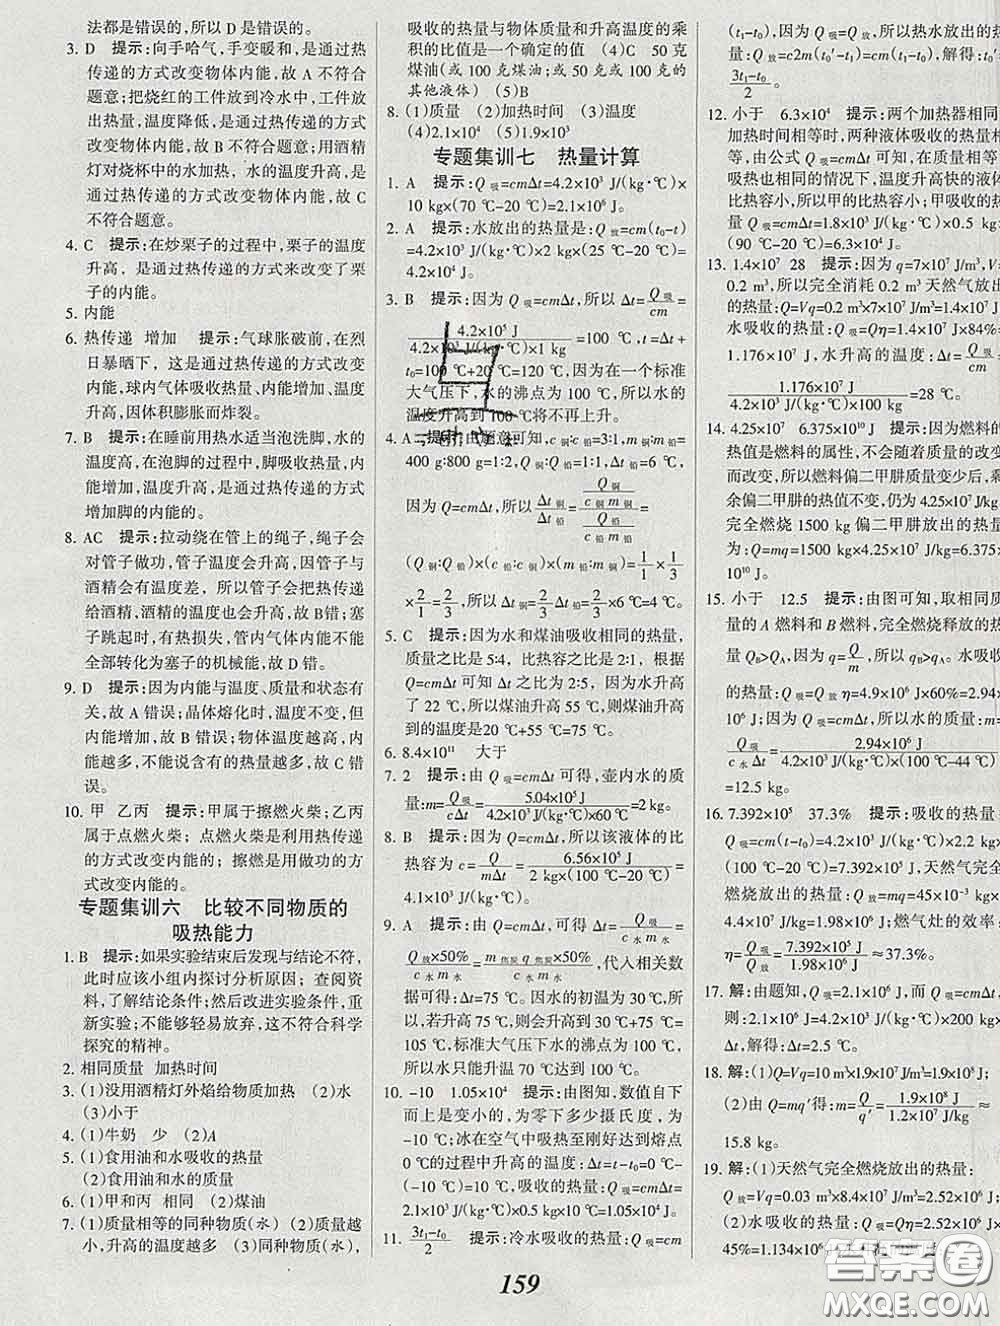 法都是错误的,所以 D 是错误的。
3. D　提示:向手哈气,手变暖和,是通过热
传递的方式改变物体内能,故 A 不符合
题意;把烧红的工件放到冷水中,工件放
出热量,温度降低,是通过热传递的方式
改变物体内能,故 B 不符合题意;用酒精
灯对烧杯中的水加热,水的温度升高,是
通过热传递的方式改变物体内能,故 C
不符合题意。
4. C　提示:在炒栗子的过程中,栗子的温度
升高,是通过热传递的方式来改变了栗
子的内能。
5. 内能
6. 热传递　增加　提示:气球胀破前,在烈
日暴晒下,这是通过热传递的方式改变
内能,球内气体吸收热量、内能增加、温度
升高,因体积膨胀而炸裂。
7. B　提示:在睡前用热水适当泡洗脚,水的
温度高,在泡脚的过程中,脚吸收热量,内
能增加,温度升高,是通过热传递的方式
增加脚的内能的。
8. AC　提示:拉动绕在管上的绳子,绳子会
对管子做功,管子温度会升高,管子与
酒精会有温度差,所以管子会把热传递
给酒精,酒精的温度也会升高,故 B错;塞
子跳起时,有热损失,管内气体内能不能
全部转化为塞子的机械能,故 D 错。
9. D　提示:因为内能与温度、质量和状态有
关,故 A 错误;晶体熔化时,温度不变,但内
能增大,故 B 错误;物体温度越高,内能越
大,不能说含有的热量越高,故 C 错
误。
10. 甲　乙丙　提示:甲属于擦燃火柴;乙丙
属于点燃火柴;点燃火柴是利用热传递
的方式改变内能的;擦燃是用做功的方
式改变内能的。
专题集训六　比较不同物质的
吸热能力
1. B　提示:如果实验结束后发现与结论不符,
此时应该小组内探讨分析原因;查阅资
料,了解结论条件;然后改进实验条件,重
新实验;不能够轻易放弃,这不符合科学
探究的精神。
2. 相同质量　加热时间
3. (1)没用酒精灯外焰给物质加热　(2)水
(3)小于
4. (1)牛奶　少　(2)A
5. (1)食用油和水吸收的热量
(2)食用油和水的质量
6. (1)甲和丙　相同　(2)煤油
7. (1)质量相等的同种物质(水)　(2)质量越
小,升高的温度越多　(3)同种物质(水),
吸收的热量与物体质量和升高温度的乘
积的比值是一个确定的值　(4)C　50 克
煤油(或 100 克煤油;或 50 克或 100 克的
其他液体)　(5)B
8. (1)质量　(2)加热时间　(3)温度
(4)2.1×10⁴　(5)1.9×10³
专题集训七　热量计算
1. A　提示:Q吸=cmΔt=4.2×10³ J/(kg·℃)×
10 kg×(70 ℃-20 ℃)=2.1×10⁶ J。
2. A　提示:水放出的热量是:Q放=cm(t₀-t)
=4.2×10³ J/(kg·℃)×2 kg×(25 ℃-20 ℃)=
4.2×10⁴ J。
3. B　提示:因为 Q吸=cmΔt,所以 Δt=Q吸/cm=
4.2×10⁵ J/4.2×10³ J/(kg·℃)×1 kg=100 ℃,t=Δt+
t₀=100 ℃+20 ℃=120 ℃,因为在一个标准
大气压下,水的沸点为 100 ℃,所以水的
温度升高到 100 ℃将不再上升。
4. A　提示:由题意可知,c铜:c铅=3:1,m铜:m铅=
400 g:800 g=1:2,Q铜:Q铅=1:1,Δt铅=6 ℃,
因为 Q=cmΔt,所以 Δt铜/Δt铅=(Q铜/c铜m铜)/(Q铅/c铅m铅)=
(Q铜:Q铅)×(c铅:c铜)×(m铅:m铜)=1/1×1/3
×2/1=2/3,所以 Δt铜=2/3Δt铅=2/3×6 ℃=4 ℃。
5. C　提示:因为水和煤油吸收相同的热量,
质量之比是 5:4,比热容之比是 2:1,根据
Q=cmΔt 可知 Δt 之比为 2:5,所以水升高
了 22 ℃,所以煤油升高 55 ℃,则煤油升高
到的温度是20+55=75 ℃。
6. 8.4×10¹¹　大于
7. 2　提示:由 Q吸=cmΔt 可得,壶内水的质
量:m=Q吸/cΔt=5.04×10⁵ J/4.2×10³ J/(kg·℃)×60 ℃=2 kg。
8. B　提示:因为 Q=cmΔt,所以该液体的比
热容为 c=Q/mΔt=6.56×10⁵ J/2 kg×(100 ℃-20 ℃)=
4.1×10³ J/(kg·℃)。
9. A　提示:由 Q=cmΔt,可得 Δt=Q吸/c水m水=
Q放×50%/c水m水=m焦炭q焦炭×50%/c水m水,代入相关
数据可得:Δt=75 ℃。因水的初温为 30 ℃,所
以,若升高 75 ℃,则会升高到 30 ℃+75 ℃=
105 ℃,标准大气压下水的沸点为 100 ℃,
所以水只能升温 70 ℃达到沸腾。
10. -10　1.05×10⁴　提示:由图知,数值自下
而上是变小的,为零下多少摄氏度,为
-10 ℃;冰在空气中吸热至刚好达到熔点
0 ℃的过程中升高的温度:Δt=t-t₀=0 ℃-
(-10 ℃)=10 ℃,吸收的热量:Q吸=cmΔt=
2.1×10³ J/(kg·℃)×0.5 kg×10 ℃=1.05×10⁴ J。
11. 3t₁-t₀/2　提示:冷水吸收的热量:Q吸=cm
(t₁-t₀),因为Q吸=Q放,所以热水放出的热
量:Q放=c2m(t₀′-t₁)=cm(t₁-t₀),解得:t₀′=
3t₁-t₀/2。
12. 小于　6.3×10⁴　提示:两个加热器相同
加热时间相等时,两种液体吸收的热量相
等,由公式 Q吸=cmΔt 可知,在质量相同、
吸热也相同的情况下,温度升高快的液体
比热容小,所以甲的比热容小;甲吸收的热
量 Q吸=cmΔt=1.8×10³ J/(kg·℃)×0.5 kg×
(90 ℃-20 ℃)=6.3×10⁴ J。
13. 1.4×10⁷　28　提示:因为 q=7×10⁷ J/m³,V=
0.2 m³,所以完全消耗 0.2 m³ 天然气放出
的热量:Q放=Vq=0.2 m³×7×10⁷ J/m³=1.4×10⁷
水吸收的热量:Q吸=Qη=1.4×10⁷ J×84%=
1.176×10⁷ J,水升高的温度:Δt=Q吸/cm=
1.176×10⁷ J/4.2×10³ J/(kg·℃)×100 kg=28 ℃。
14. 4.25×10⁷　6.375×10¹⁰ J　提示:因为燃料的
热值是燃料的属性,不会随着质量的改变
而改变,所以燃料偏二甲肼质量变少后,剩
余偏二甲肼的热值不变,仍为 4.25×10⁷ J/kg
完全燃烧 1500 kg 偏二甲肼放出的热量
为:Q=mq=1500 kg×4.25×10⁷ J/kg=6.375×
10¹⁰ J。
15. 小于　12.5　提示:由图可知,取相同质
量的 A 燃料和 B 燃料,完全燃烧释放的热
量 QB>QA,因为 q=Q/m,所以 qB>qA。水吸收
的热量:Q吸=Q放η=4.9×10⁶ J×60%=2.94×
10⁶ J;因为 Q吸=cmΔt,所以水的质量:m=
Q吸/c水Δt=2.94×10⁶ J/4.2×10³ J/(kg·℃)×(100 ℃-44 ℃)
=12.5 kg。
16. 7.392×10⁵　37.3%　提示:吸收的热量:
Q吸=cm(t-t₀)=4.2×10³ J/(kg·℃)×2.2 kg×
(100 ℃-20 ℃)=7.392×10⁵ J,天然气完全
燃烧放出的热量:Q放=mq=45×10⁻³ kg×
4.4×10⁷ J/kg=1.98×10⁶ J;燃气灶的效率:
η=Q吸/Q放=7.392×10⁵ J/1.98×10⁶ J≈37.3%。
17. 解:由题知,Q吸=2.1×10⁶ J,而 Q吸=cmΔt,
则:2.1×10⁶ J=4.2×10³ J/(kg·℃)×200 kg×
Δt,解得:Δt=2.5 ℃。
18. 解:(1)Q=Vq=10 m³×1.9×10⁷ J/m³=1.9×10⁸ J;
(2)由 Q=mq′得:m=Q/q′=1.9×10⁸ J/1.2×10⁷ J/kg≈
15.8 kg。
19. 解:(1)天然气完全燃烧放出的热量:
Q放=Vq=0.03 m³×8.4×10⁷ J/m³=2.52×10⁶ J
(2)水吸收的热量:Q吸=Qη=2.52×10⁶ J×
45%=1.134×10⁶
159
答案圈
MXQE.COM